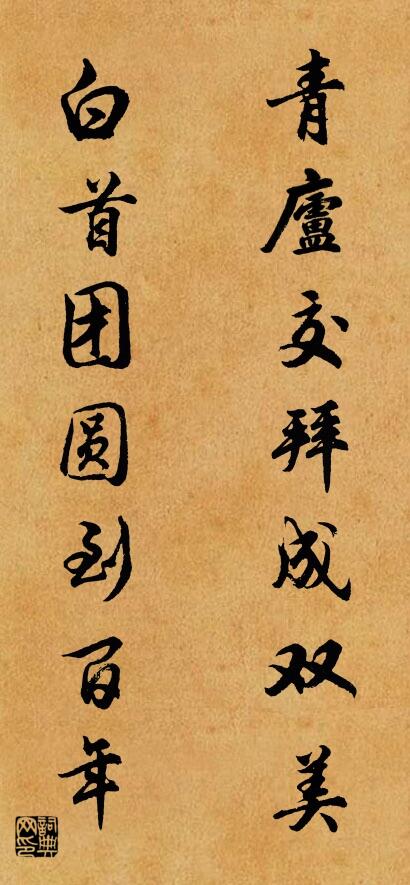 青廬交拜成双美
白首团圆到百年
詞典网印